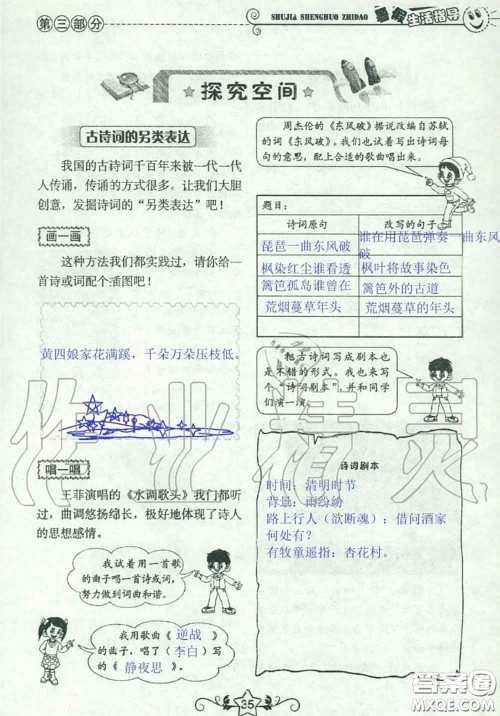 第三部分
SHUJIA SHENGHUO ZHIDAO
暑假生活指导
探究空间
古诗词的另类表达
我国的古诗词千百年来被一代一代
人传诵，传诵的方式很多。让我们大胆
创意，发掘诗词的“另类表达”吧！
画一画
这种方法我们都实践过，请你给一
首诗或词配个插图吧！
黄四娘家花满蹊，千朵万朵压枝低。
唱一唱
王菲演唱的《水调歌头》我们都听
过，曲调悠扬绵长，极好地体现了诗人
的思想感情。
我试着用一首歌
的曲子唱一首诗或词，
努力做到词曲和谐。
我用歌曲《 逆战 》
的曲子，唱了（李白）写
的《 静夜思 》
周杰伦的《东风破》据说改编自苏轼
的词《东风破》。我也试着写出诗词每
句的意思，配上合适的歌曲唱出来。
题目：
诗词原句 改写的句子
琵琶一曲东风破 谁在用琵琶弹奏一曲东风破
枫染红尘谁看透 枫叶将故事染色
篱笆孤岛谁曾在 篱笆外的古道
荒烟蔓草年头 荒烟蔓草的年头
把古诗词写成剧本也
是不错的形式。我也来写
个“诗词剧本”，并和同学
们演一演。
诗词剧本
时间：清明时节
背景：雨纷纷
路上行人（欲断魂）：借问酒家
何处有？
有牧童遥指：杏花村。
作业精灵
35
答案圈
MXQE.COM